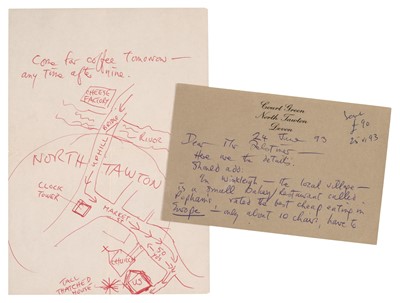 Come for coffee Tomorrow —
any time after nine.
CHEESE
FACTORY
UPHILL
ROAD
RIVER
NORTH TAWTON
CLOCK
TOWER
MARKET
50
YDS
CHURCH
TALL
THATCHED
HOUSE
US
Court Green
North Tawton
Devon
24 June 93
Dear Mr
Here are the details.
Should add
In Winkleigh — the local village —
is a small Bakery/Restaurant called
Pophams, voted the best cheap eating in
Europe — only about 10 chairs, have to